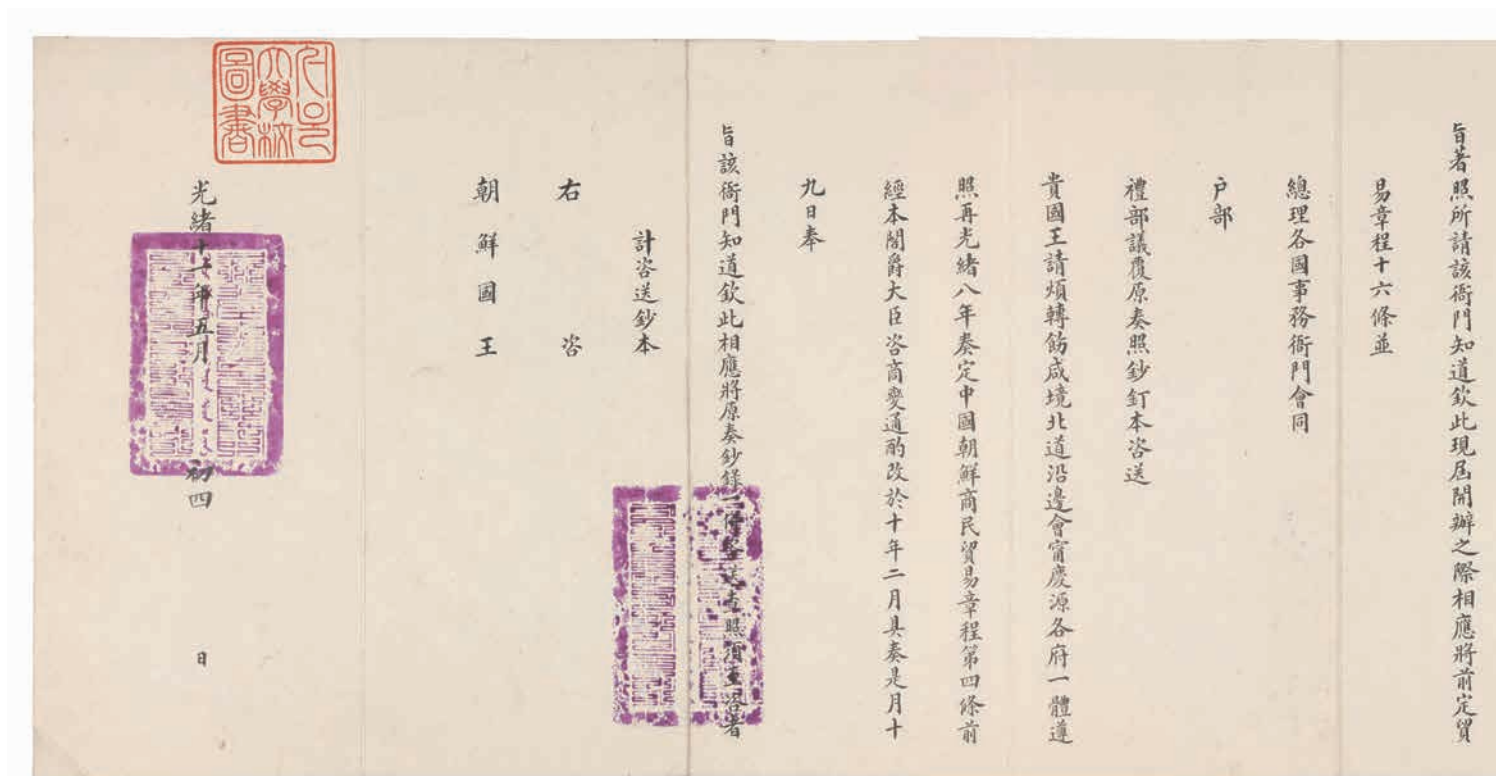 旨著照所請該衙門知道欽此現屆開辦之際相應將前定貿
易章程十六條並
總理各國事務衙門會同
户部
禮部議覆原奏照鈔釘本咨送
貴國王請煩轉飭咸境北道沿邊會甯慶源各府一體遵
照再光緒八年奏定中國朝鮮商民貿易章程第四條前
經本閣爵大臣咨商變通酌改於十年二月具奏是月十
九日奉
旨該衙門知道欽此相應將原奏鈔錄一併咨送查照須至咨者
計咨送鈔本
右咨
朝鮮國王
光緒十年五月初四日
서울
大學校
圖書